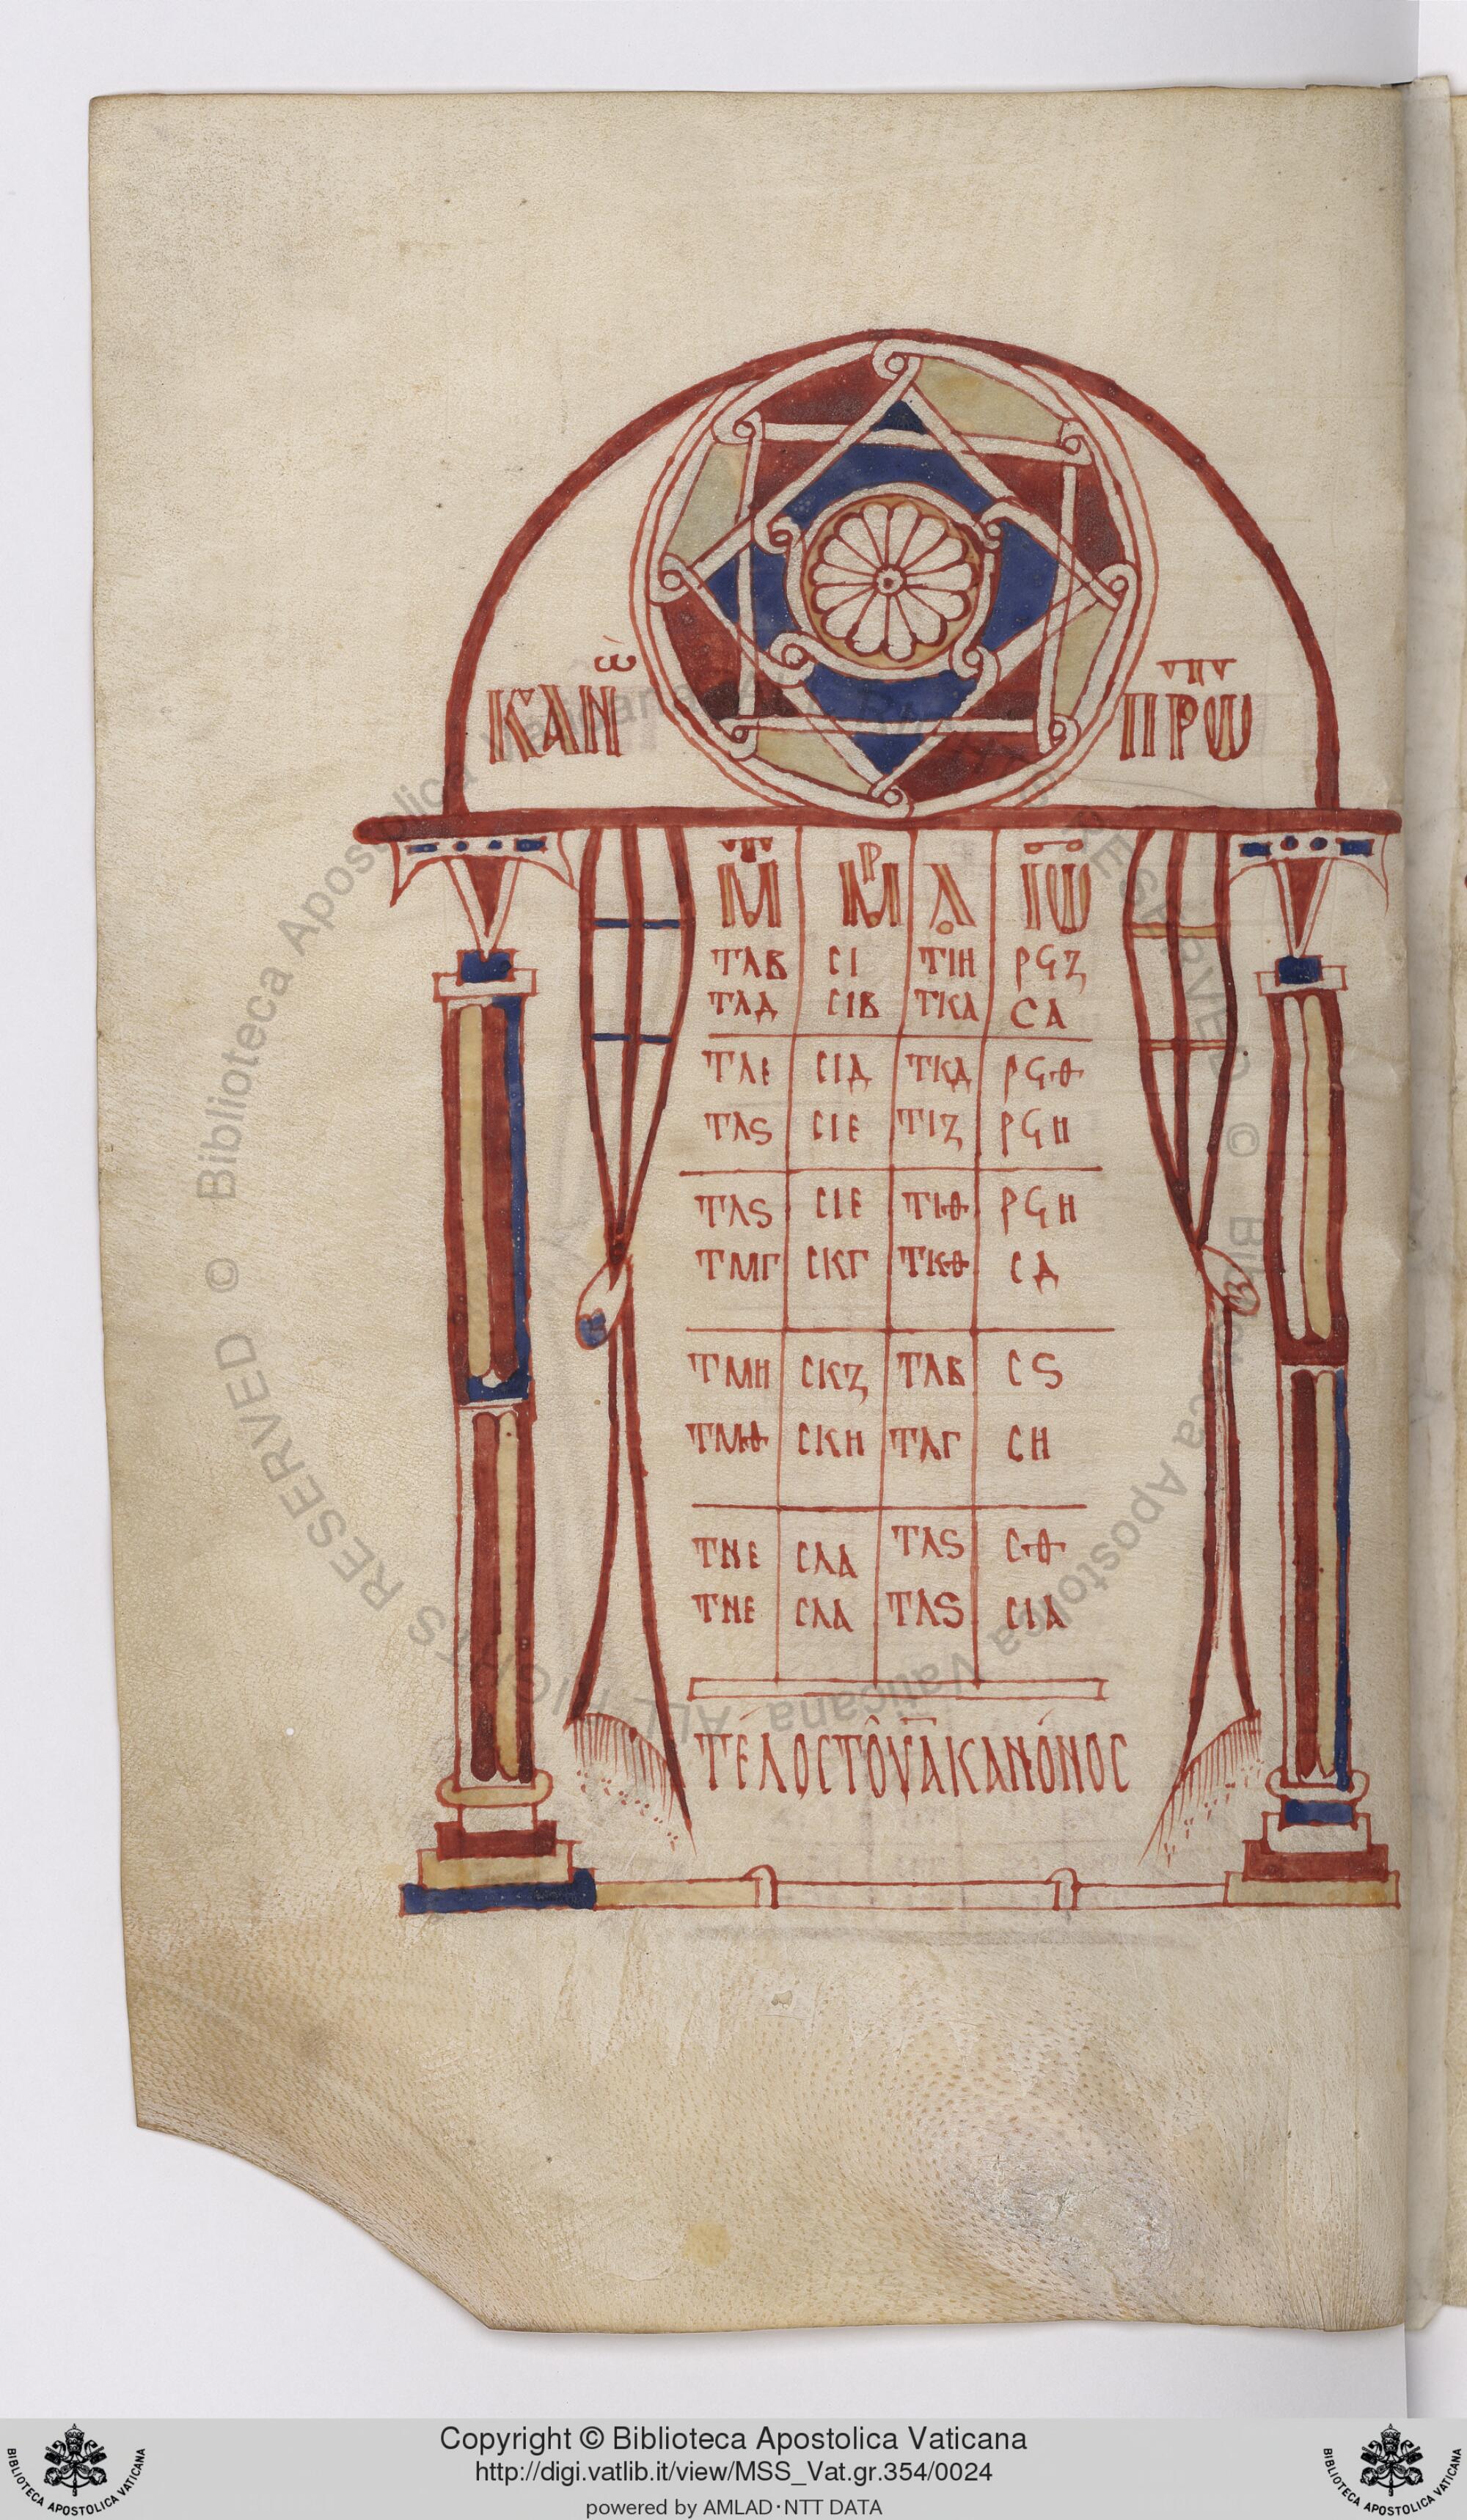 ΚΑΝ ω ΠΡΩ
Μ ΜΡ Λ ΙΩ
ΤΛΒ ϹΙ ΤΙΗ ΡϞΖ
ΤΛΔ ϹΙΒ ΤΚΑ ϹΑ
ΤΛΕ ϹΙΔ ΤΚΔ ΡϞΘ
ΤΛϚ ϹΙΕ ΤΙΖ ΡϞΗ
ΤΛϚ ϹΙΕ ΤΙΘ ΡϞΗ
ΤΜΓ ϹΚΓ ΤΚΘ ϹΔ
ΤΜΗ ϹΚΖ ΤΛΒ ϹϚ
ΤΜΘ ϹΚΗ ΤΛΓ ϹΗ
ΤΝΕ ϹΛΑ ΤΛϚ ϹΘ
ΤΝΕ ϹΛΑ ΤΛϚ ϹΙΑ
ΤΈΛΟϹ ΤΟῦ Α̅ ΚΑΝΌΝΟϹ
© Biblioteca Apostolica Vaticana ALL RIGHTS RESERVED
Copyright © Biblioteca Apostolica Vaticana
http://digi.vatlib.it/view/MSS_Vat.gr.354/0024
powered by AMLAD·NTT DATA
BIBLIOTECA APOSTOLICA VATICANA
BIBLIOTECA APOSTOLICA VATICANA